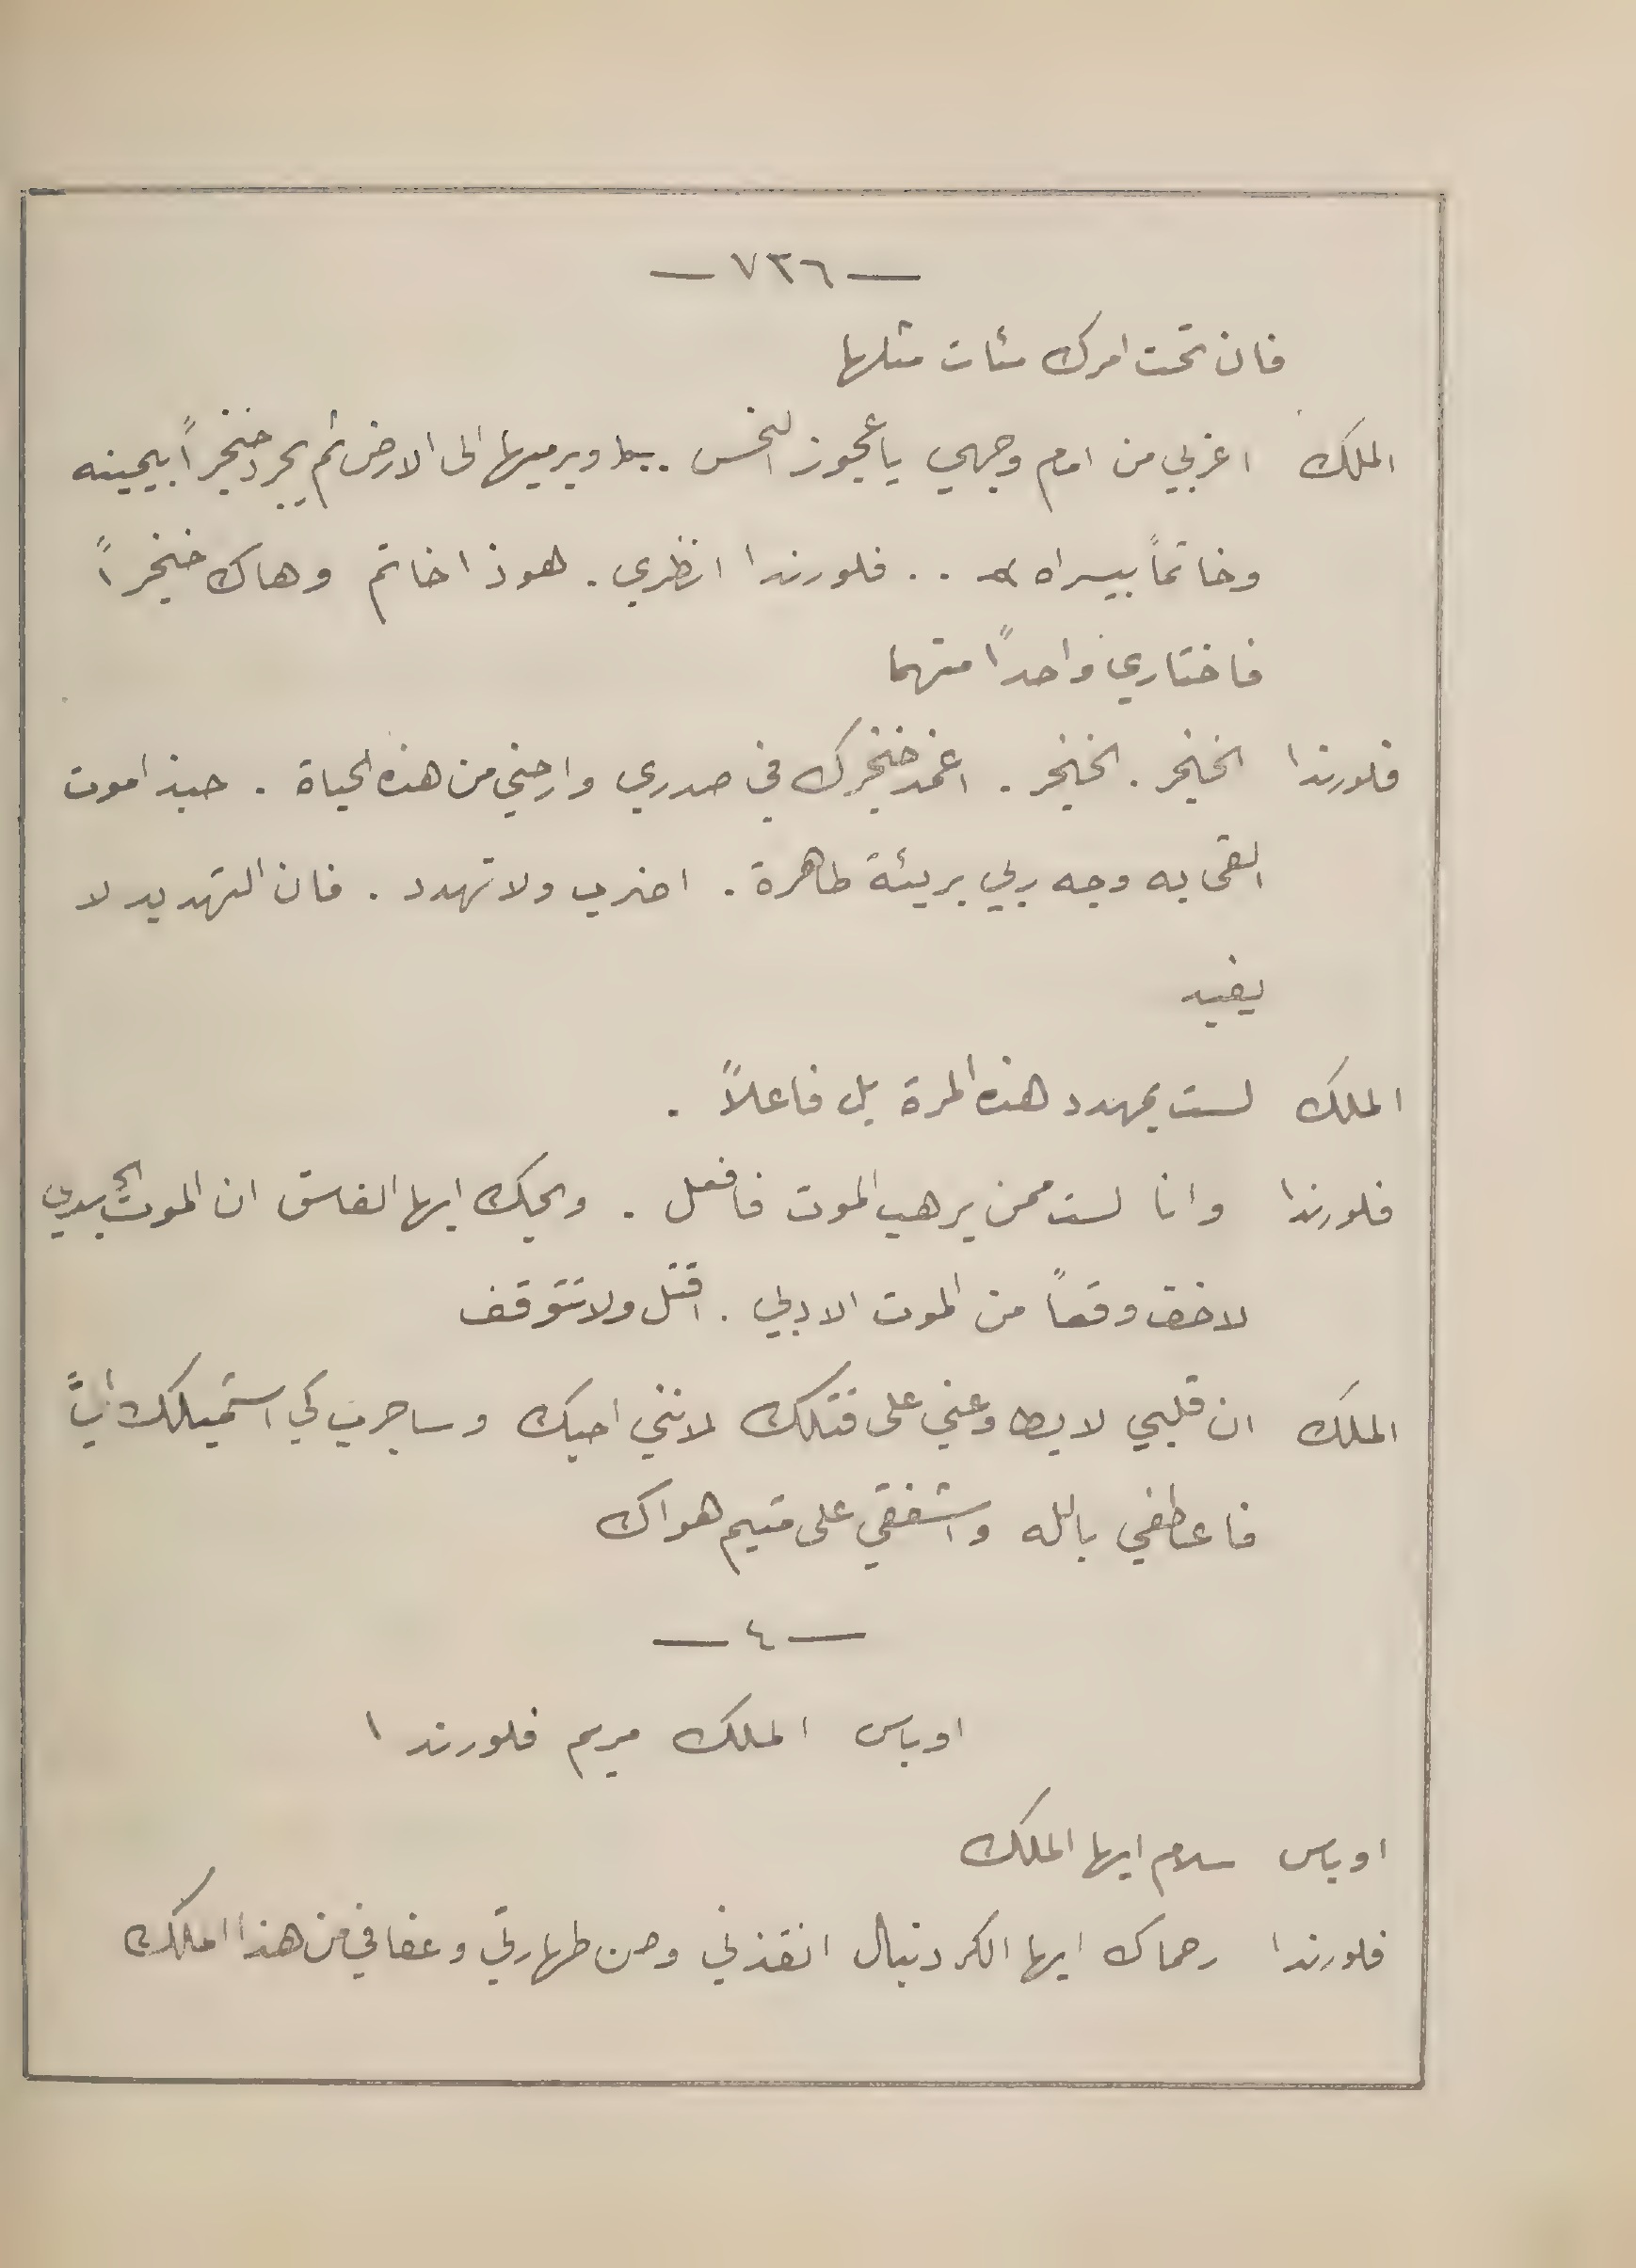 — ٧٣٦ —
فان تحت امرك مئات مثلها
الملك اغربي من امام وجهي يا عجوز النحس . ويرميها الى الارض ثم يجرد خنجراً بيمينه
وخاتماً بيسراه . . فلورندا انظري . هوذا خاتم وهاك خنجراً
فاختاري واحداً منهما
فلورندا الخنجر . الخنجر . اغمد خنجرك في صدري وارحني من هذه الحياة . حبذا موت
القى به وجه ربي بريئة طاهرة . اضرب ولا تهدد . فان التهديد لا
يفيد
الملك لست بمهدد هذه المرة بل فاعلاً .
فلورندا وانا لست ممن يرهب الموت فافعل . ويحك ايها الفاسق ان الموت الجسدي
لاخف وقعاً من الموت الادبي . اقتل ولا تتوقف
الملك ان قلبي لا يطاوعني على قتلك لانني احبك وساجرب كي استميلك
فاعطفي بالله واشفقي على متيم هواك
— ٤ —
اوباس الملك مريم فلورندا
اوباس سلام ايها الملك
فلورندا رحماك ايها الكردينال انقذني وصن طهارتي وعفافي من هذا الملك